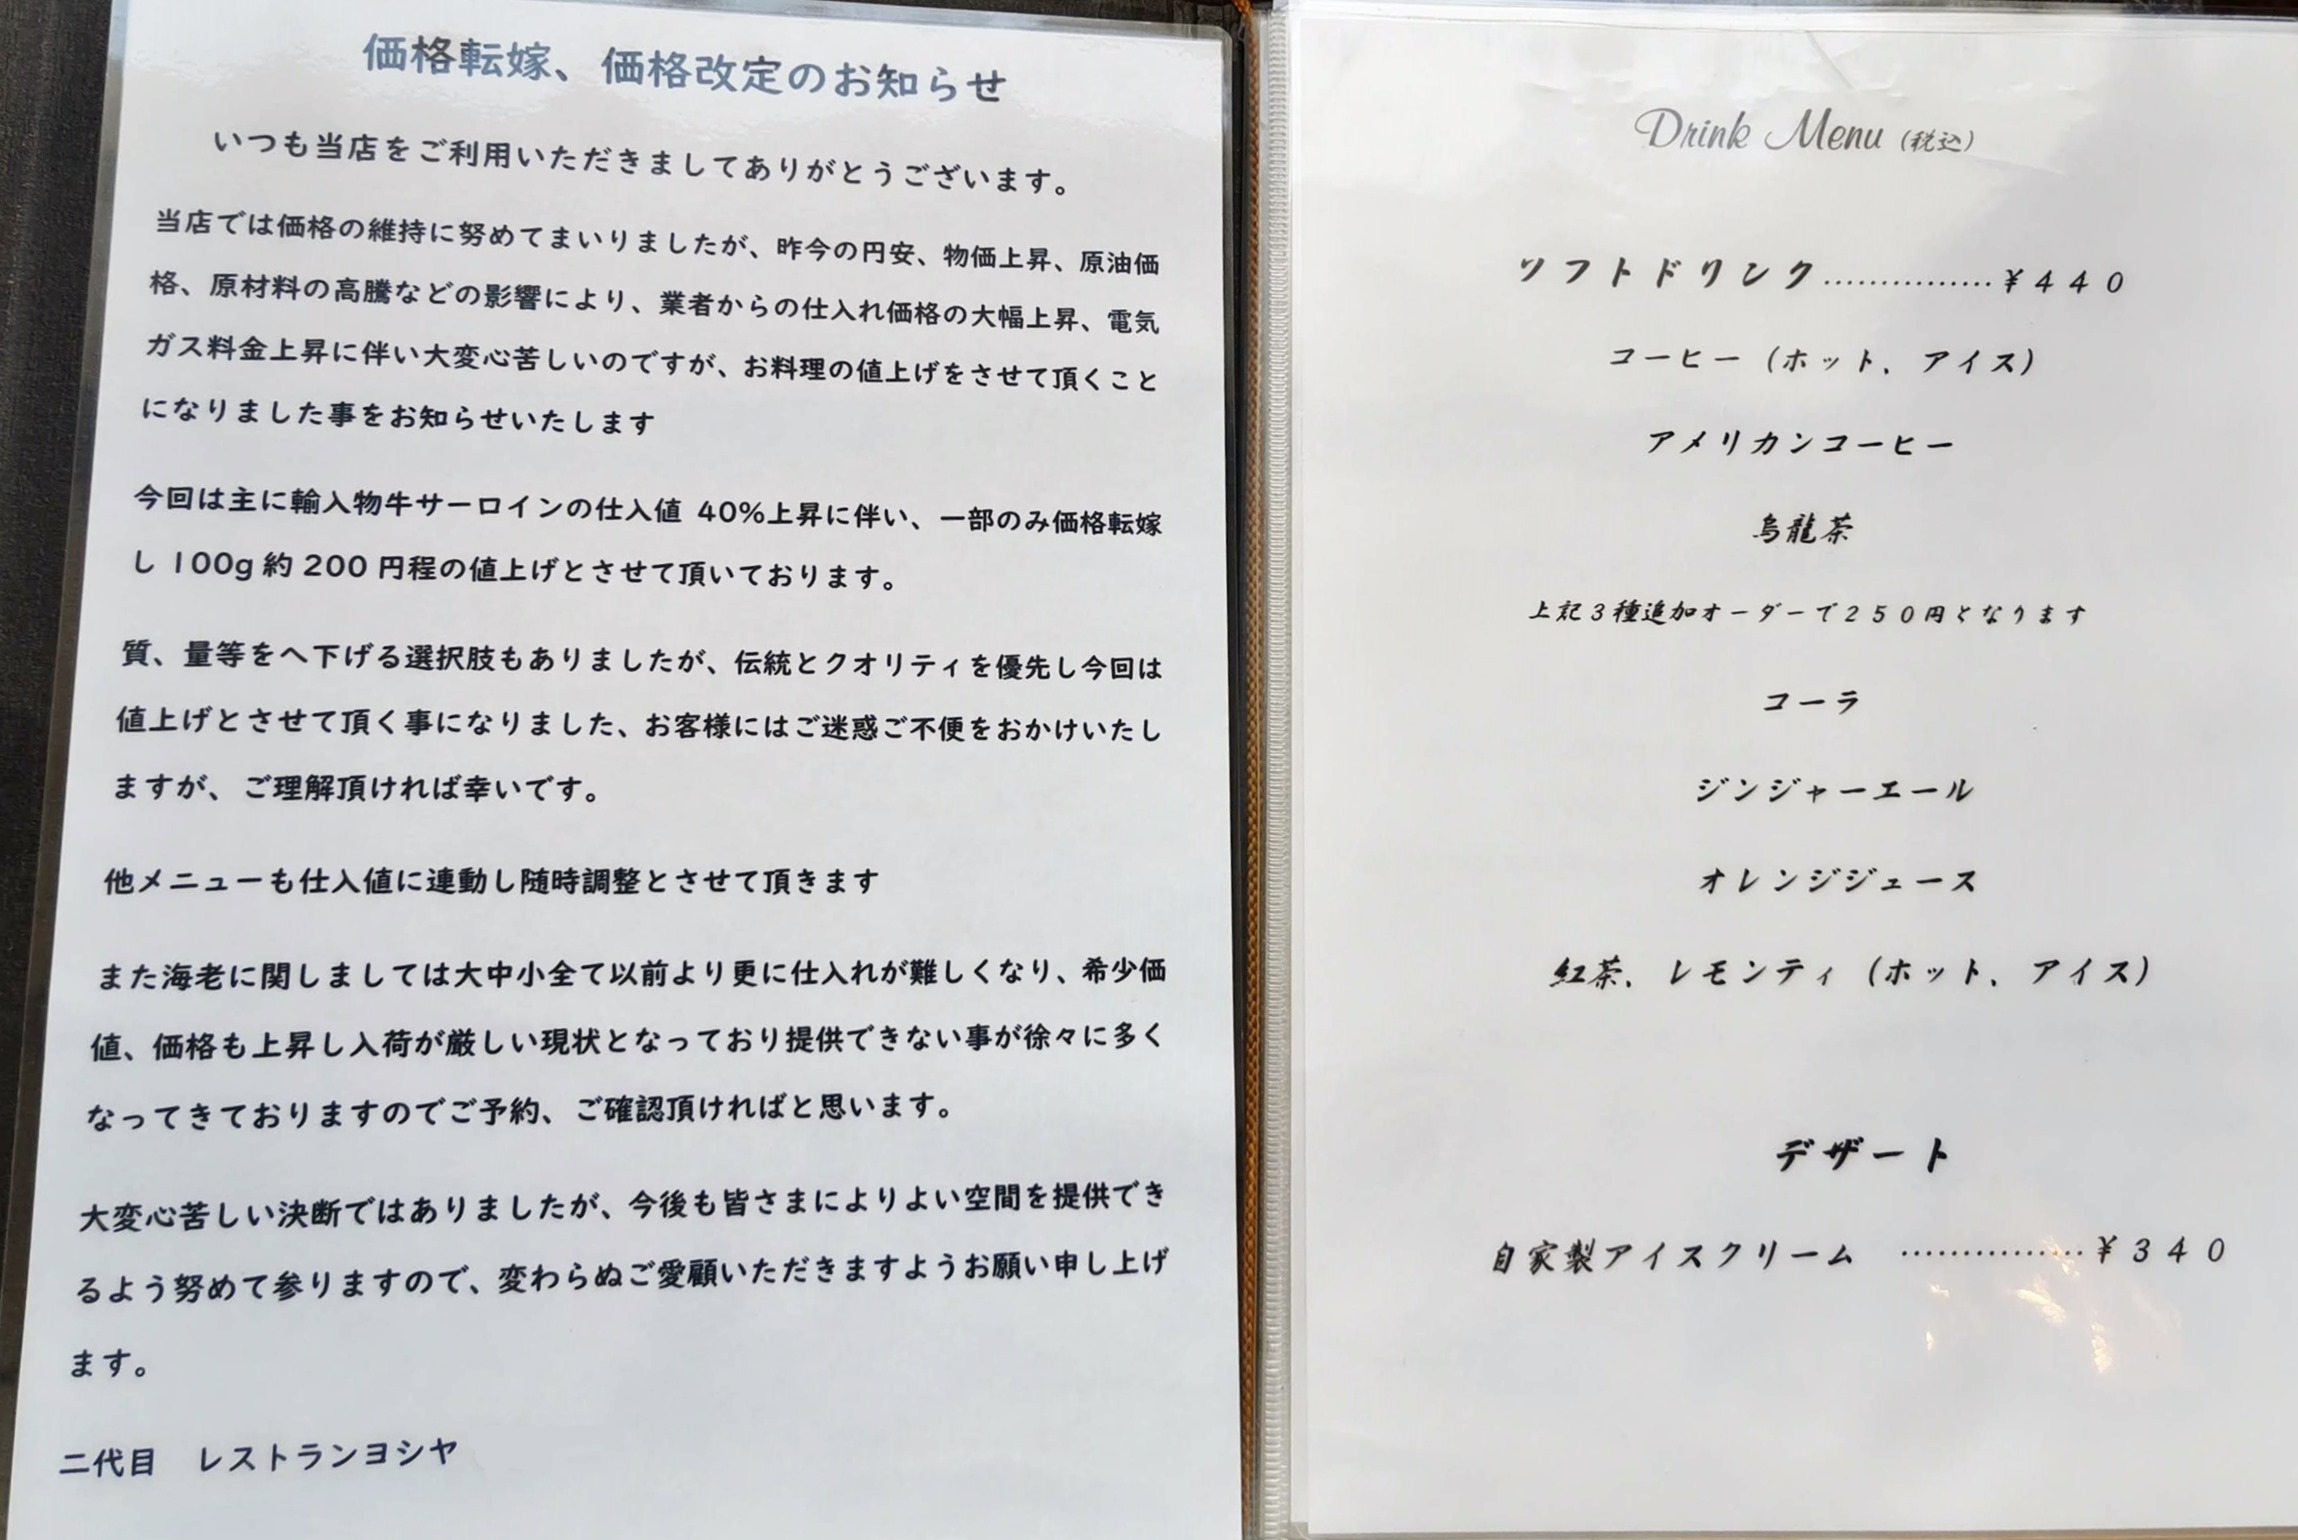 価格転嫁、価格改定のお知らせ
いつも当店をご利用いただきましてありがとうございます。
当店では価格の維持に努めてまいりましたが、昨今の円安、物価上昇、原油価
格、原材料の高騰などの影響により、業者からの仕入れ価格の大幅上昇、電気
ガス料金上昇に伴い大変心苦しいのですが、お料理の値上げをさせて頂くこと
になりました事をお知らせいたします
今回は主に輸入物牛サーロインの仕入値 40%上昇に伴い、一部のみ価格転嫁
し 100g 約 200 円程の値上げとさせて頂いております。
質、量等をへ下げる選択肢もありましたが、伝統とクオリティを優先し今回は
値上げとさせて頂く事になりました、お客様にはご迷惑ご不便をおかけいたし
ますが、ご理解頂ければ幸いです。
他メニューも仕入値に連動し随時調整とさせて頂きます
また海老に関しましては大中小全て以前より更に仕入れが難しくなり、希少価
値、価格も上昇し入荷が厳しい現状となっており提供できない事が徐々に多く
なってきておりますのでご予約、ご確認頂ければと思います。
大変心苦しい決断ではありましたが、今後も皆さまによりよい空間を提供でき
るよう努めて参りますので、変わらぬご愛顧いただきますようお願い申し上げ
ます。
二代目　レストランヨシヤ
Drink Menu (税込)
ソフトドリンク……………¥440
コーヒー（ホット、アイス）
アメリカンコーヒー
烏龍茶
上記3種追加オーダーで250円となります
コーラ
ジンジャーエール
オレンジジュース
紅茶、レモンティ（ホット、アイス）
デザート
自家製アイスクリーム　……………¥340